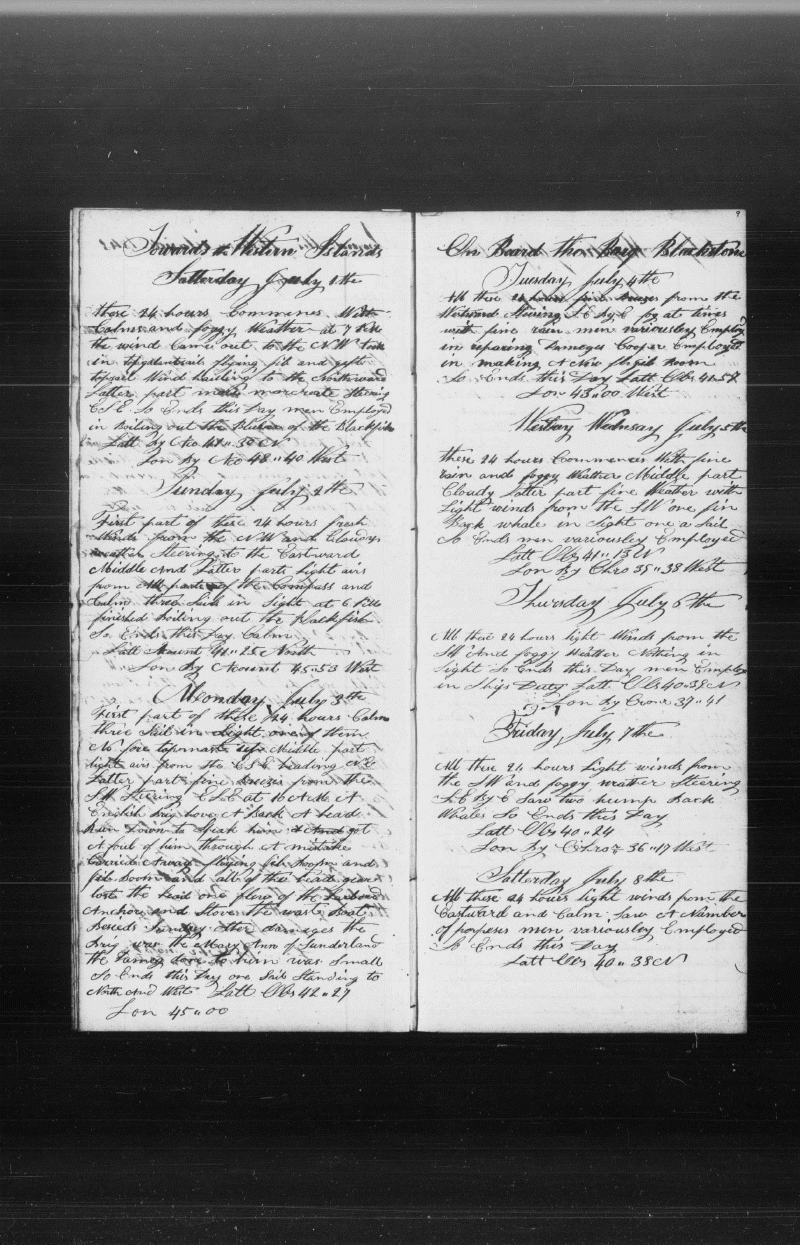 Towards the Western Islands
Satterday July 1the
these 24 hours Commines With
Calms and foggy Weather at 7 PM
the wind Came out to the NW took
in topgalantsail flying jib and gaft
topsail Wind hauling to the Northward
Latter part more moderate Steering
ESE So Ends this Day men Employd
in Boiling out the Blubber of the Blackfish
Latt by Ac 41"30 N
Lon By Ac 48"40 West
Sunday July 2the
First part of these 24 hours fresh
Winds from the NW and Cloudy
weather Steering to the Eastward
Middle And Latter parts light airs
from All parts of the Compass and
Calm three Sails in Sight at 6 PM
finished Boiling out the blackfish
So Ends this Day Calm
Latt Acount 41"25 North
Lon By Acount 45"53 West
Monday July 3the
First part of these 24 hours Calm
three Sail in Sight one of them
No fore topmast up Middle part
light airs from the ESE heading NE
Latter part fine breezes from the
SW Steering ESE at 10 AM A
English Brig hove A Back A head
Run Down to Speak him And got
A foul of him through A mistake
Carried Away flying jib Boom and
jib boom and all of the head gear
lost the head one fluey of the Larboard
Anchor and Stove the wast Boat
Beseds Sundrey other damages the
Brig was the Mary Ann of Sunderland
the Dameg done to him was Small
So Ends this Day one Sail Standing to
North And West Latt Obs 42"27
Lon 45"00
9
On Board the Barq Blackstone
Tuesday July 4the
All these 24 hours fine breezes from the
Westward Steering SE by E fog at times
with fine rain men variousley Employd
in repairing Dameges Cooper Employed
in making A New flyjib boom
So Ends this Day Latt Obs 41"57
Lon 43"00 West
Wensday July 5the
these 24 hours Commences With fine
rain and foggy Weather Middle part
Cloudy Latter part fine Weather with
Light winds from the SW one fin
Back whale in Sight one a Sail
So Ends men variousley Employed
Latt Obs 41"13 N
Lon By Chro 38"38 West
Thursday July 6the
All these 24 hours light Winds from the
SW And foggy Weather Nothing in
Sight So Ends this Day men Employd
in Ships Duty Latt Obs 40"38 N
Lon By Cron 37"41
Friday July 7the
All these 24 hours Light winds from
the SW and foggy weather Steering
SE By E Saw two hump back
Whales So Ends this Day
Latt Obs 40"24
Lon By Chro 36"17 West
Satterday July 8the
All these 24 hours light winds from the
Eastward and Calm Saw A Number
of porpeses men variousley Employed
So Ends this Day
Latt Obs 40"38 N